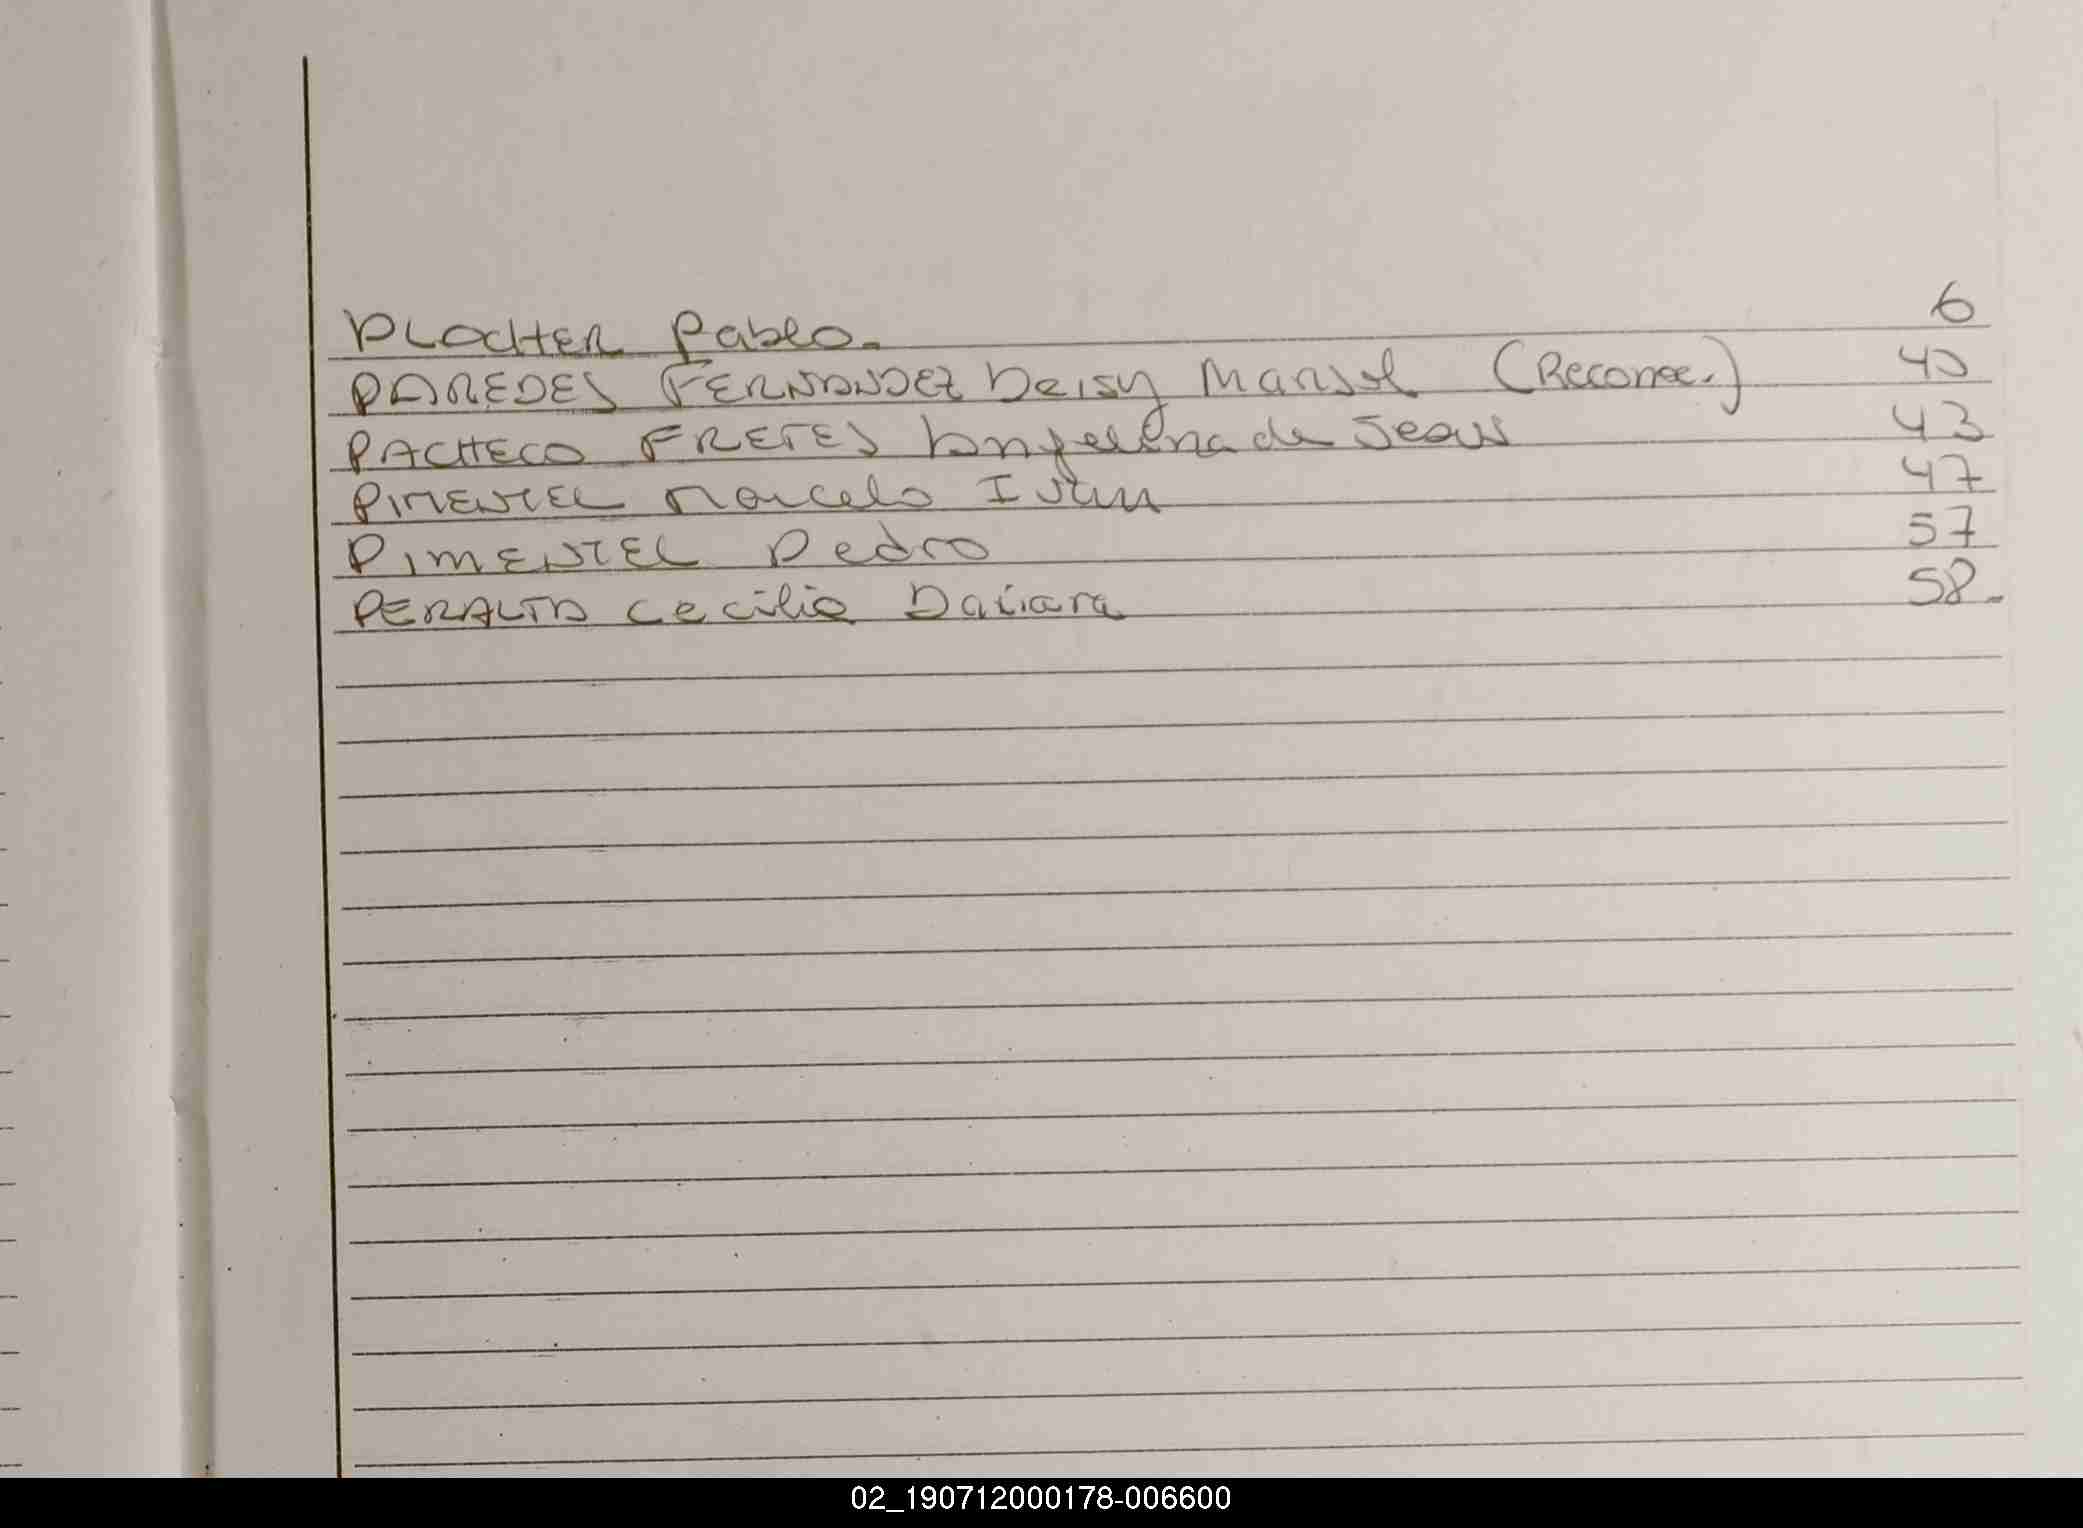 PLOCHER Pablo. 6
PAREDES FERNANDEZ Deisy Marisol (Reconoc.) 40
PACHECO FRETES Angelina de Jesus 43
PIMENTEL Marcelo Ivan 47
PIMENTEL Pedro 57
PERALTA Cecilia Daiara 58.
02_190712000178-006600